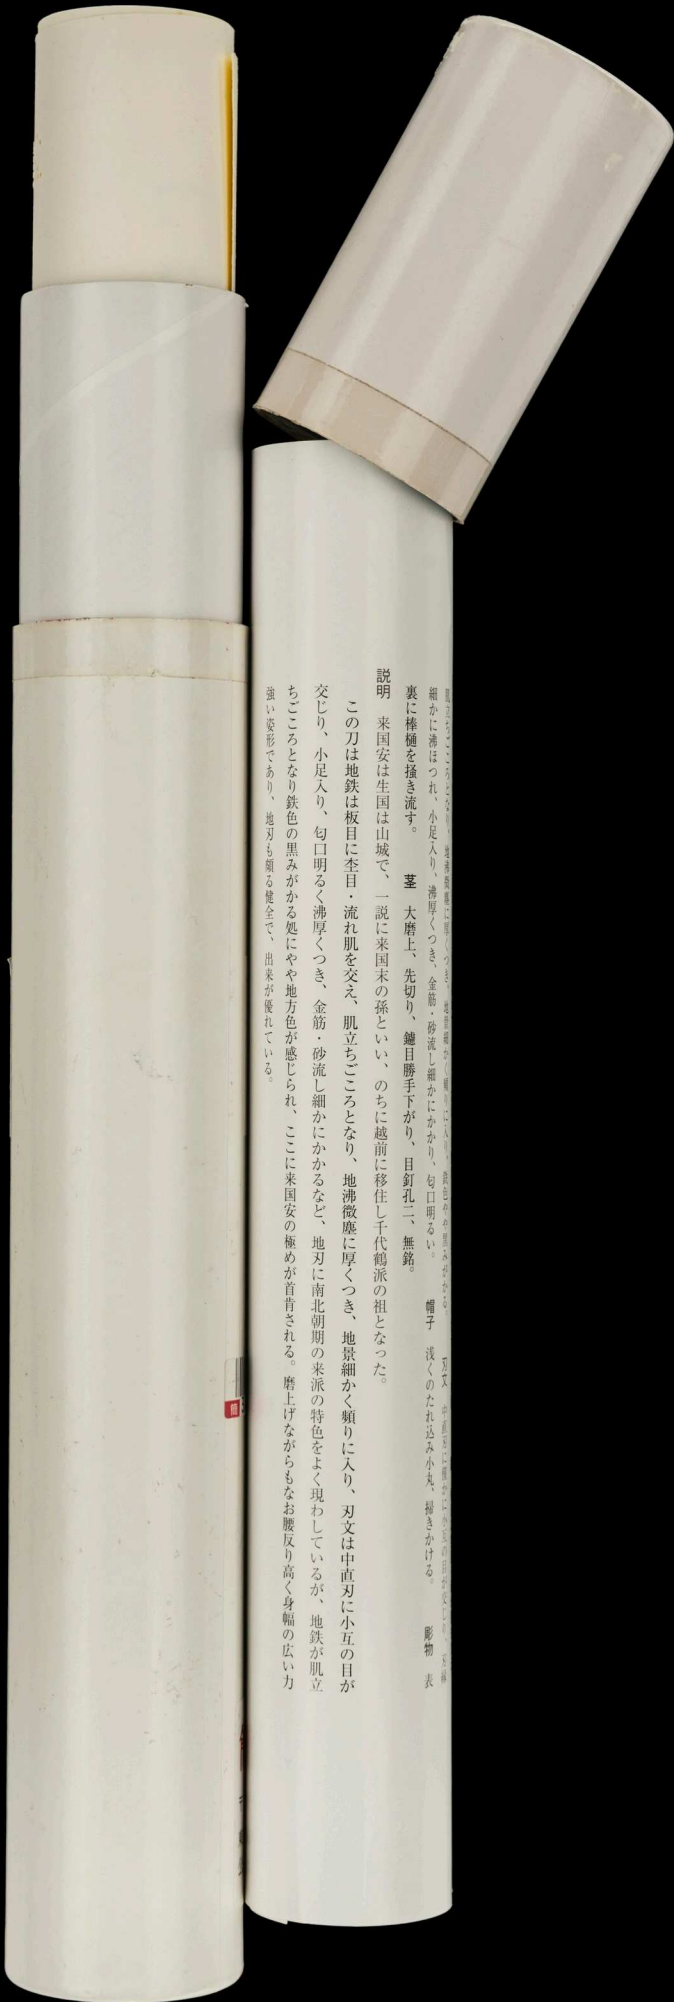 肌立ちごころとなり、地沸微塵に厚くつき、地景細かく頻りに入り、鉄色やや黒みがかる。 刃文 中直刃に僅かに小互の目が交じり、刃縁
細かに沸ほつれ、小足入り、沸厚くつき、金筋・砂流し細かにかかり、匂口明るい。 帽子 浅くのたれ込み小丸、掃きかける。 彫物 表
裏に棒樋を掻き流す。 茎 大磨上、先切り、鑢目勝手下がり、目釘孔二、無銘。
説明 来国安は生国は山城で、一説に来国末の孫といい、のちに越前に移住し千代鶴派の祖となった。
この刀は地鉄は板目に杢目・流れ肌を交え、肌立ちごころとなり、地沸微塵に厚くつき、地景細かく頻りに入り、刃文は中直刃に小互の目が
交じり、小足入り、匂口明るく沸厚くつき、金筋・砂流し細かにかかるなど、地刃に南北朝期の来派の特色をよく現わしているが、地鉄が肌立
ちごころとなり鉄色の黒みがかる処にやや地方色が感じられ、ここに来国安の極めが首肯される。磨上げながらもなお腰反り高く身幅の広い力
強い姿形であり、地刃も頗る健全で、出来が優れている。